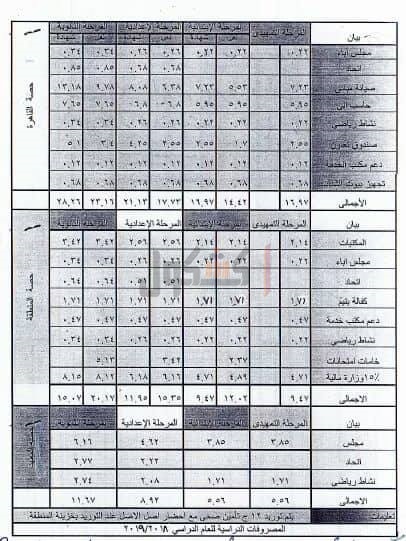 بيان المرحلة التمهيدي المرحلة الابتدائية المرحلة الاعدادية المرحلة الثانوية
نقل شهادة نقل شهادة نقل شهادة
مجلس اباء ٠,٢٢ ٠,٢٢ ٠,٢٢ ٠,٢٦ ٠,٢٦ ٠,٣٤ ٠,٣٤
اتحاد ٠,٦٨ ٠,٦٨ ٠,٨٥ ٠,٨٥
صيانة مباني ٧,٢٣ ٥,٥٣ ٧,٢٣ ٦,٣٨ ٨,٠٨ ٩,٧٨ ١٣,١٨
حاسب الى ٥,٩٥ ٥,٩٥ ٥,٩٥ ٧,٦٥ ٧,٦٥
نشاط رياضي
صندوق تعاون ٢,٥٥ ١,٧ ٢,٥٥ ٢,٥٥ ٤,٢٥ ٣,٤ ٥,١
دعم مكتب الخدمة ٠,١٢ ٠,١٢ ٠,١٢ ٠,١٢ ٠,١٢ ٠,١٢ ٠,١٢
تجهيز بيوت ٠,٦٨ ٠,٦٨ ٠,٦٨ ٠,٦٨ ٠,٦٨ ٠,٦٨
الاجمالى ١٦,٩٧ ١٤,٤٢ ١٦,٩٧ ١٧,٧٣ ٢١,١٣ ٢٣,١٦ ٢٨,٢٦
حصة القاهرة
بيان المرحلة التمهيدي المرحلة الابتدائية المرحلة الإعدادية المرحلة الثانوية
المكتبات ٢,١٤ ٢,١٤ ٢,١٤ ٢,٥٦ ٢,٥٦ ٣,٤٢ ٣,٤٢
مجلس اباء ٠,٢٦ ٠,٢٦ ٠,٢٦
اتحاد ٠,٥١ ٠,٥١ ٠,٦٤ ٠,٦٤
كفالة يتيم ١,٧١ ١,٧١ ١,٧١ ١,٧١ ١,٧١ ١,٧١ ١,٧١
دعم مكتب خدمة ٠,٤٧ ٠,٤٧ ٠,٤٧ ٠,٤٧ ٠,٤٧ ٠,٤٧ ٠,٤٧
نشاط رياضي
خامات امتحانات ٢,٣٧ ٣,٤٢ ٥,١٣
١٥% وزارة مالية ٤,٧١ ٤,٨٩ ٤,٧١ ٦,١٦ ٦,١٨ ٨,١٢ ٨,١٥
الاجمالى ٩,٤٧ ١٢,٠٢ ٩,٤٧ ١٥,٣٥ ١١,٩٥ ٢٠,١٧ ١٥,٠٧
حصة المنطقة
بيان المرحلة التمهيدي المرحلة الابتدائية المرحلة الإعدادية المرحلة الثانوية
مجلس ٣,٨٥ ٣,٨٥ ٤,٦٢ ٦,١٦
اتحاد ٢,٢٢ ٢,٧٧
نشاط رياضي ١,٧١ ١,٧١ ٢,٠٨ ٢,٧٤
الاجمالى ٥,٥٦ ٥,٥٦ ٨,٩٢ ١١,٦٧
تعليمات يتم توريد ١٢ ج تأمين صحى مع احضار اصل الايصال عند التوريد بخزينة المنطقة
المصروفات الدراسية للعام الدراسي ٢٠١٩/٢٠١٨